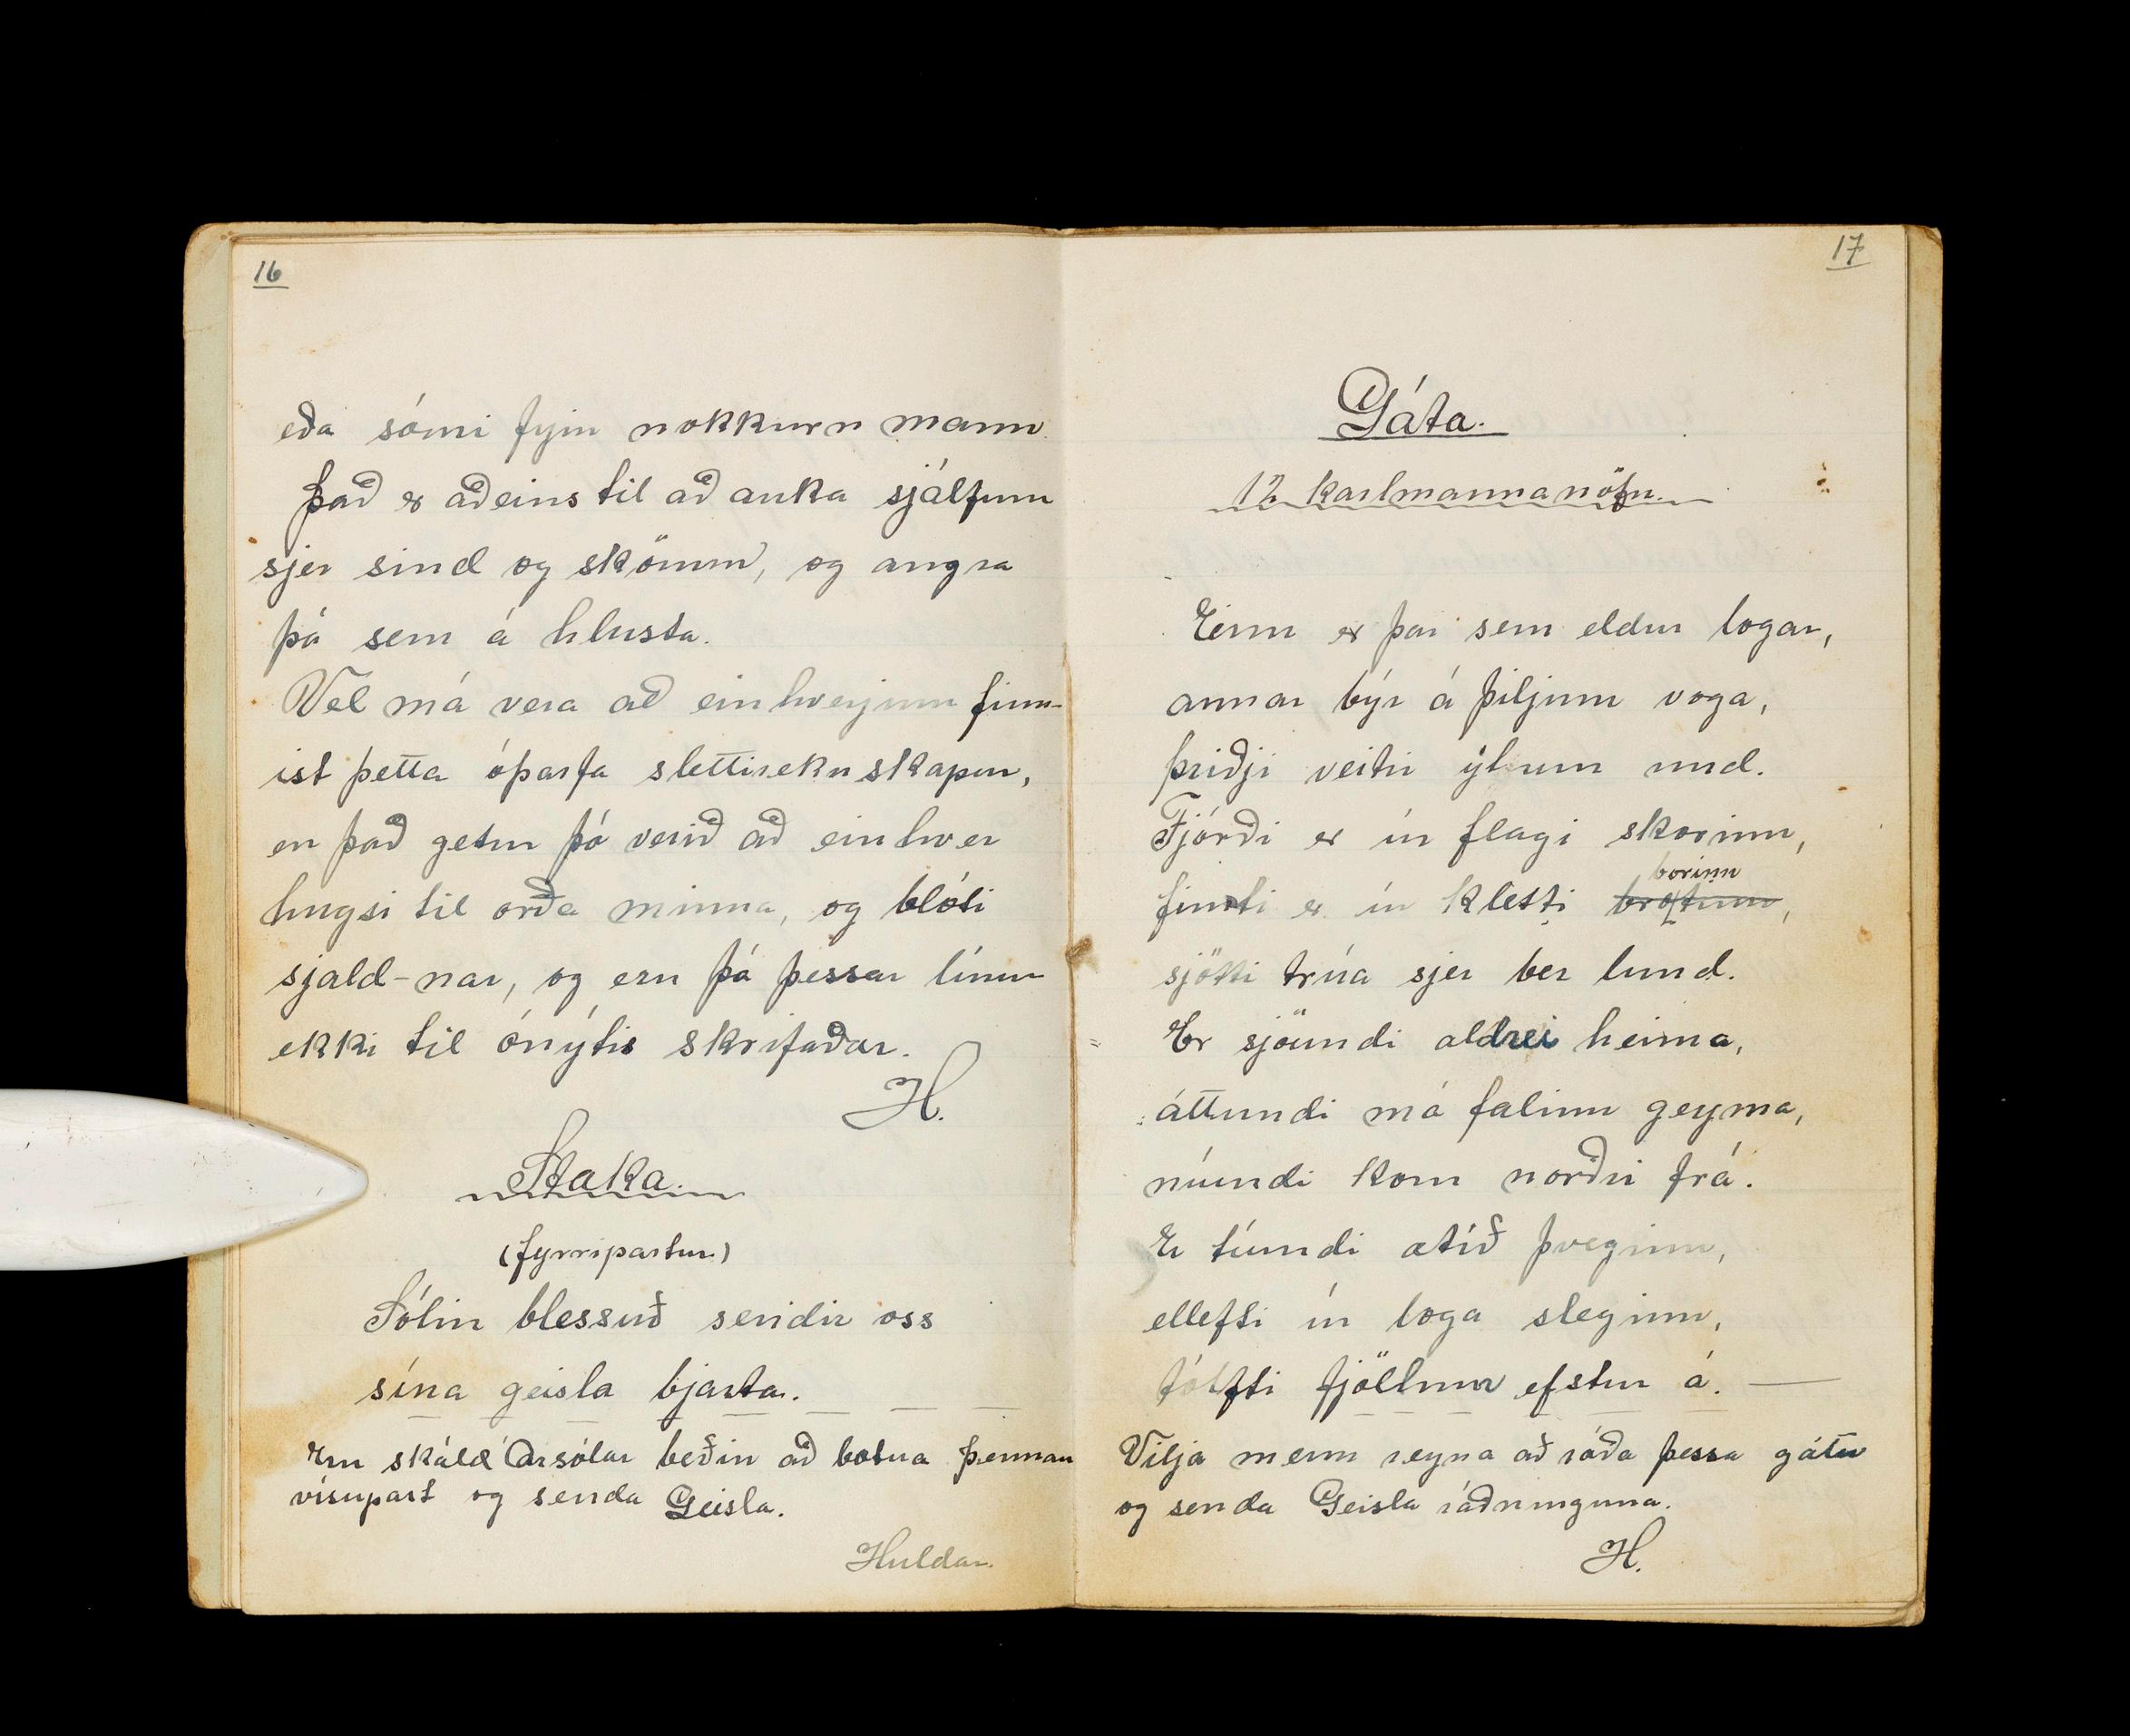 16
eða sómi fyrir nokkurn mann.
Það er aðeins til að auka sjálfum
sjer sind og skömm, og angra
þá sem á hlusta.
Vel má vera að einhverjum finn-
ist þetta óþarfa slettirekuskapur,
en það getur þó verið að einhver
hugsi til orða minna, og blóti
sjald-nar, og eru þá þessar línur
ekki til ónýtis skrifaðar.
H.
Staka.
(fyrripartur)
Sólin blessuð sendir oss
sína geisla bjarta.
Eru skáld Ársólar beðin að botna þennan
vísupart og senda Geisla.
Huldar.
17
Gáta.
12 karlmannanöfn.
Einn er þar sem eldur logar,
annar býr á þiljum voga,
þriðji veitir ýtrum und.
Fjórði er úr flagi skorinn,
borinn
fimti er úr kletti brotinn,
sjötti trúa sjer ber lund.
Er sjöundi aldrei heima,
áttundi má falinn geyma,
níundi kom norðri frá.
Er tíundi ætíð þveginn,
ellefti úr loga sleginn,
tólfti fjöllum efstur á. —
Vilja menn reyna að ráða þessa gátu
og senda Geisla ráðninguna.
H.